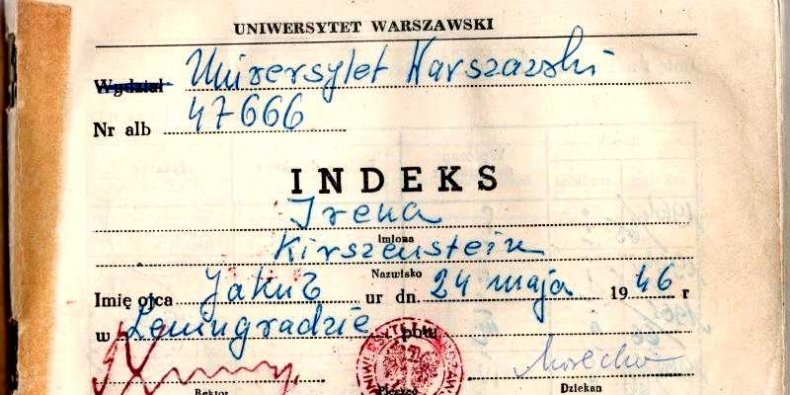 UNIWERSYTET WARSZAWSKI
Wydział Uniwersytet Warszawski
Nr alb 47666
INDEKS
Irena
Imiona
Kirszenstein
Nazwisko
Imię ojca Jakub ur dn. 24 maja 1946 r
w Leningradzie pow.
Rektor Pieczęć Dziekan